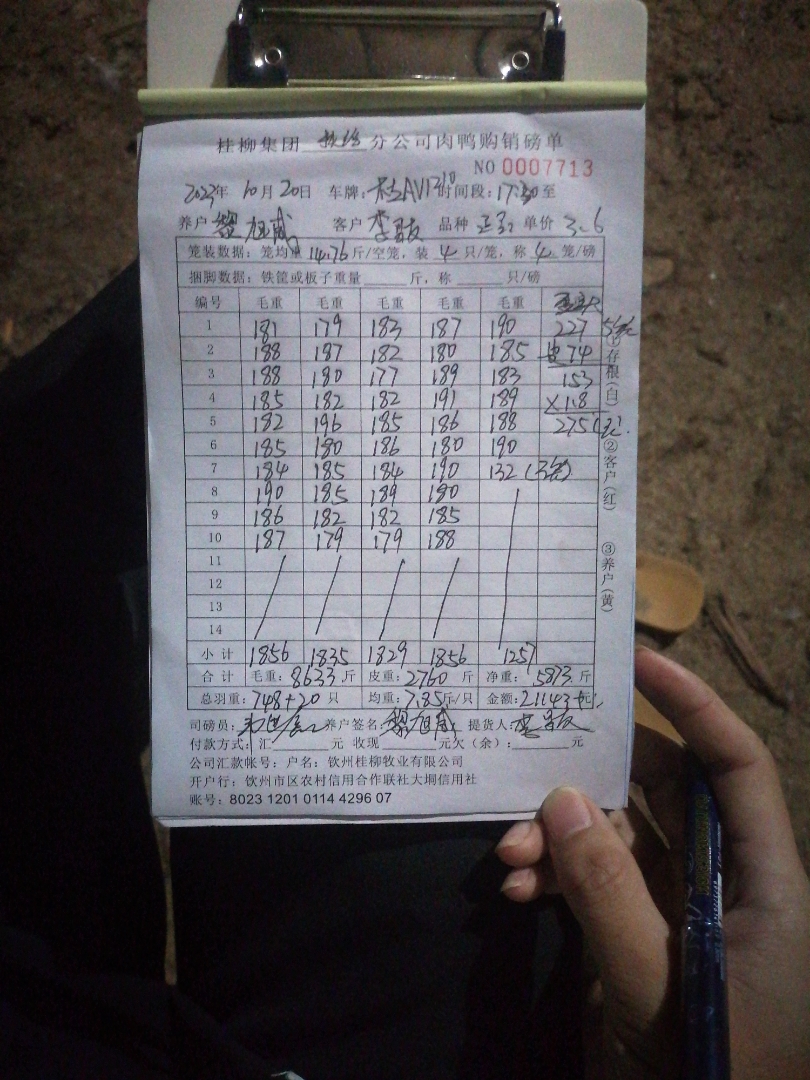 桂柳集团 分公司肉鸭购销磅单
NO 0007713
2023年 10月 20日 车牌: 时间段: 17:30至
养户 黎旭威 客户 品种 单价 3.6
笼装数据: 笼均重 14.76 斤/空笼, 装 4 只/笼, 称 4 笼/磅
捆脚数据: 铁筐或板子重量 斤, 称 只/磅
编号 毛重 毛重 毛重 毛重 毛重
1 181 179 183 187 190 227
2 188 187 182 180 185 皮74
3 188 180 177 189 183 153
4 185 182 182 191 189 ×1.8
5 182 196 185 186 188 275(元)
6 185 180 186 180 190
7 184 185 184 190 132
8 190 185 189 190
9 186 182 182 185
10 187 179 179 188
11
12
13
14
小计 1856 1835 1829 1856 1257
合计 毛重: 8633 斤 皮重: 2760 斤 净重: 5873 斤
总羽重: 748+20 只 均重: 7.85 斤/只 金额: 21143 元
司磅员: 养户签名: 黎旭威 提货人:
付款方式: 汇 元 收现 元欠(余): 元
公司汇款帐号: 户名: 钦州桂柳牧业有限公司
开户行: 钦州市区农村信用合作联社大垌信用社
账号: 8023 1201 0114 4296 07
①存根(白) ②客户(红) ③养户(黄)